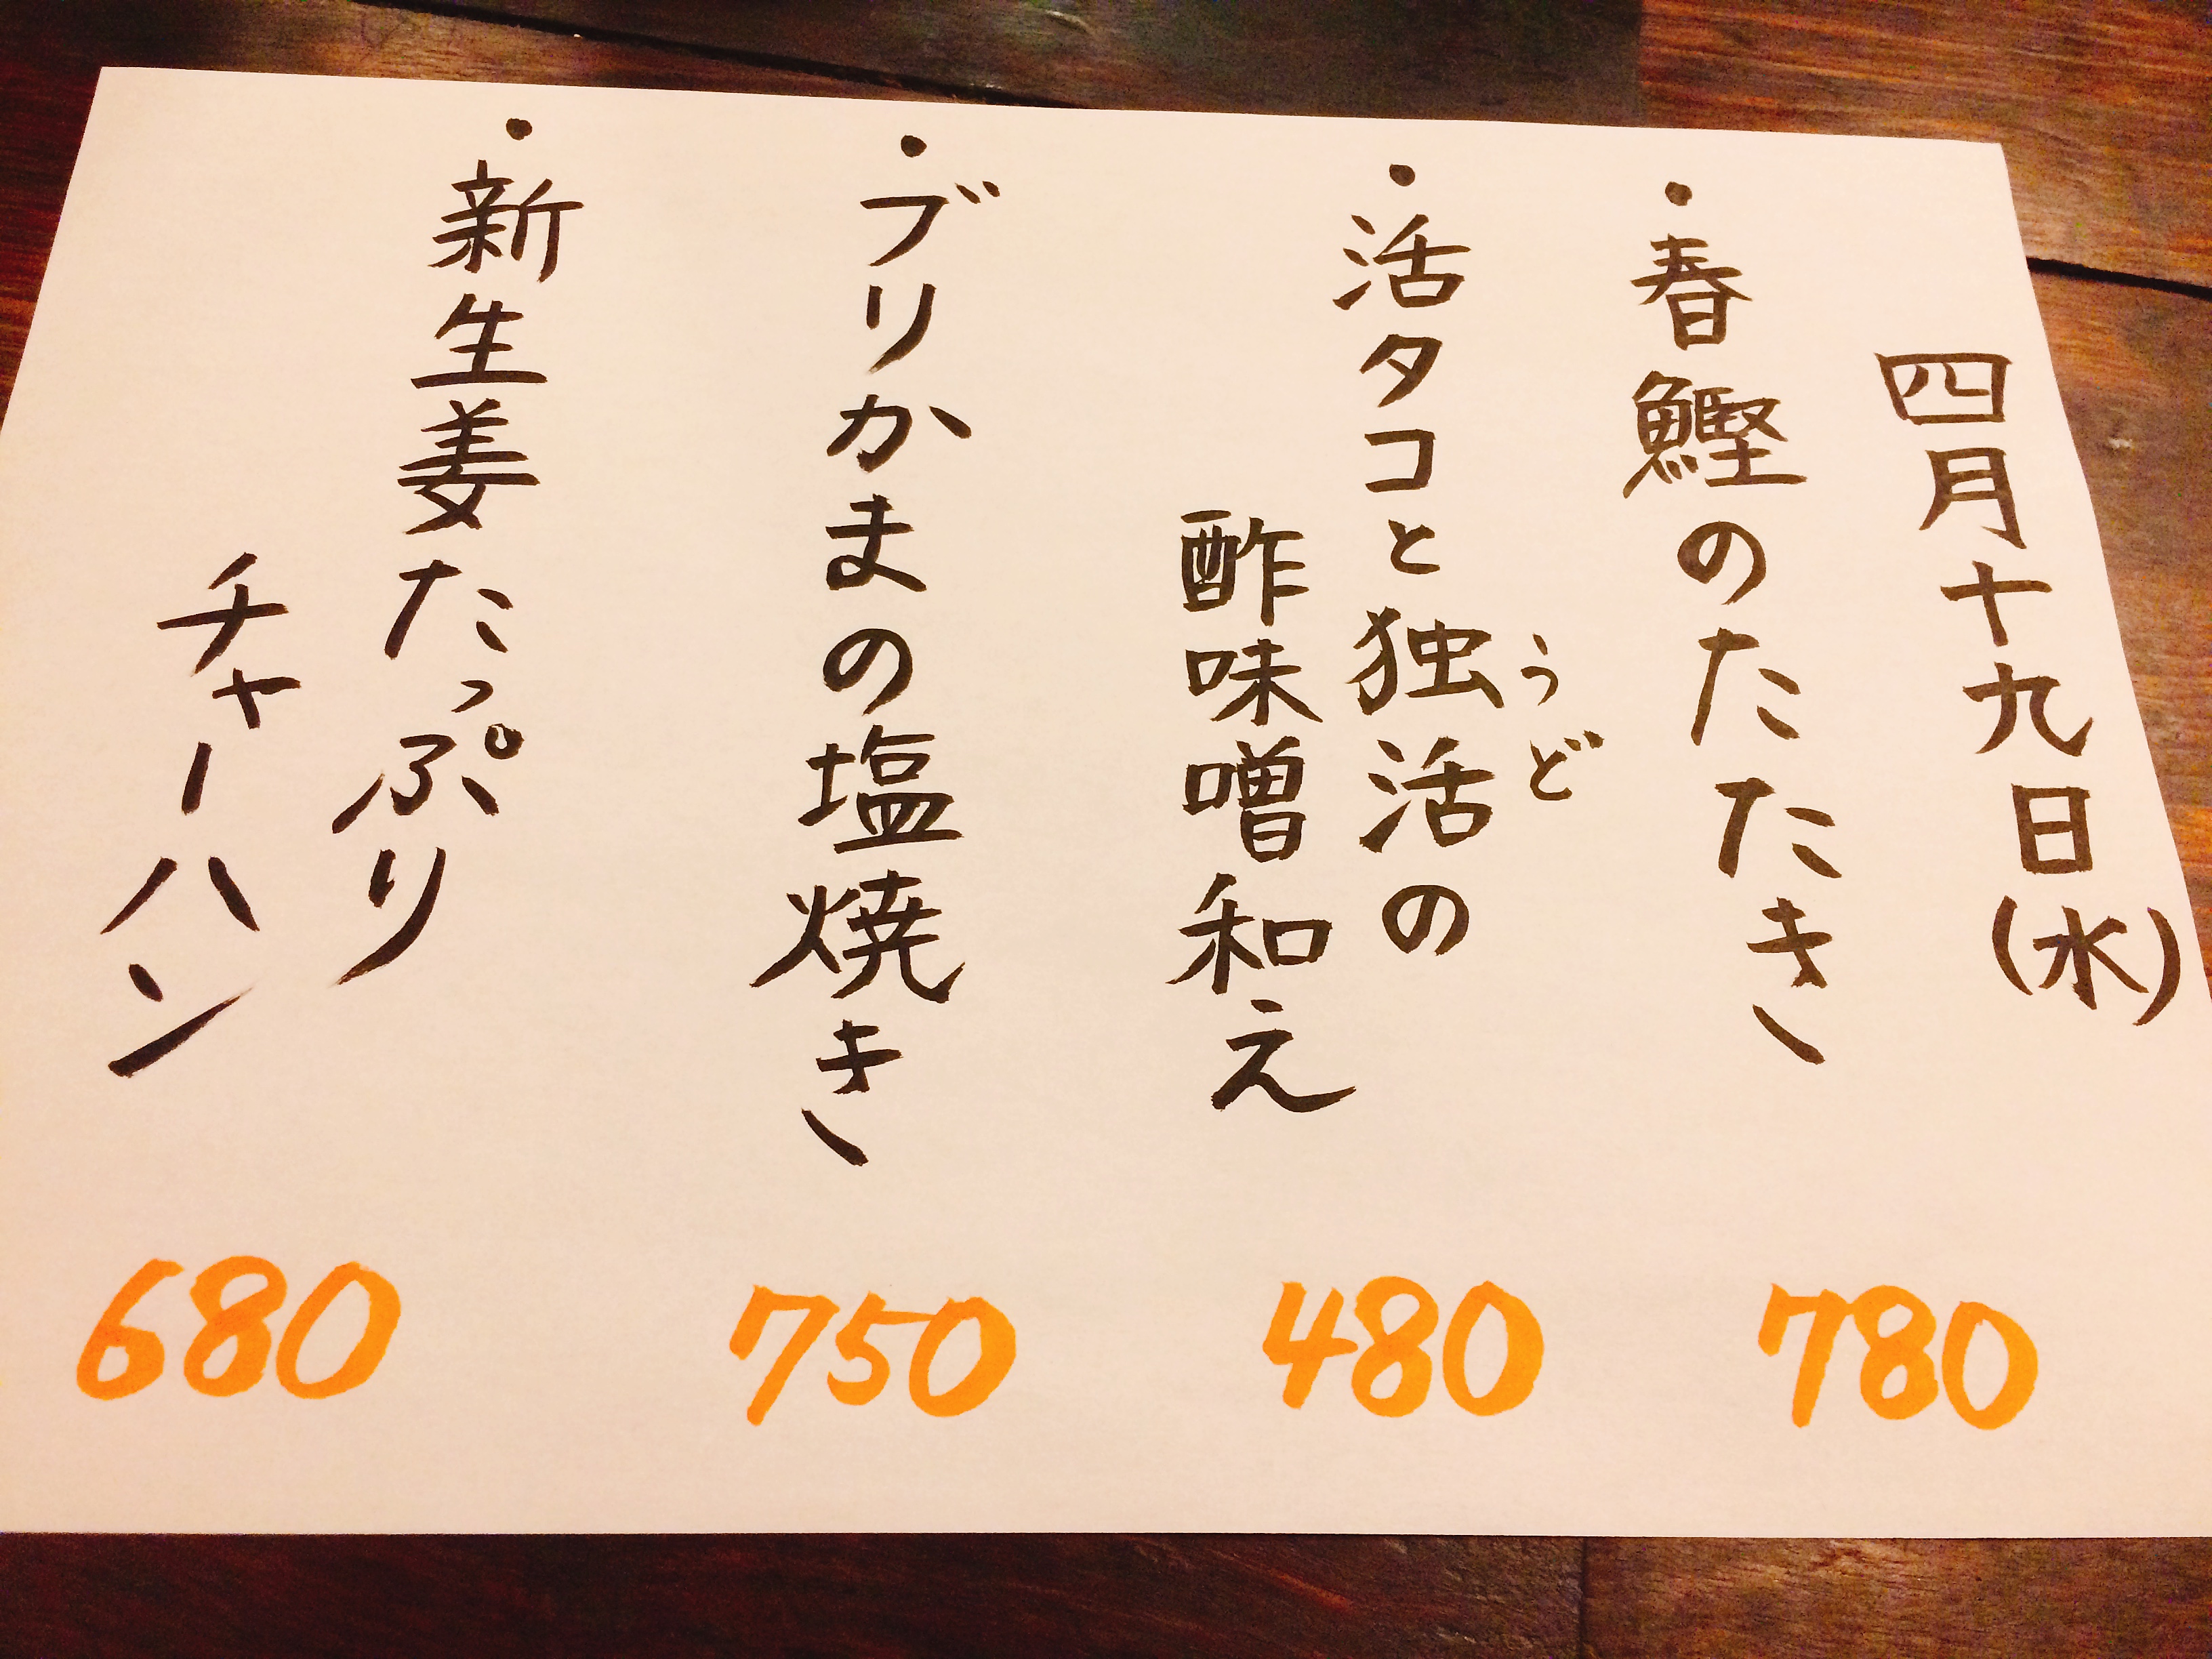 四月十九日(水)
・春鰹のたたき
780
うど
・活タコと独活の
酢味噌和え
480
・ブリかまの塩焼き
750
・新生姜たっぷり
チャーハン
680